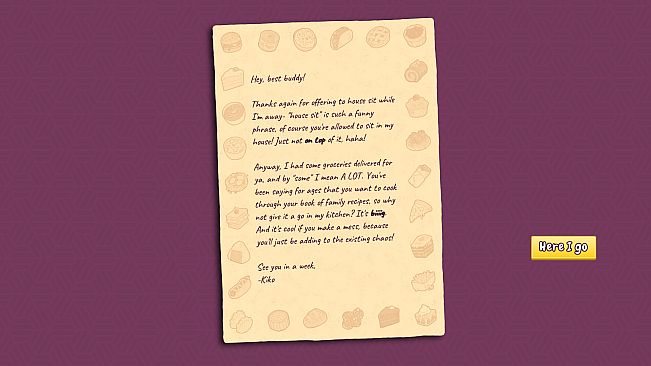 Hey, best buddy!
Thanks again for offering to house sit while
I'm away- "house sit" is such a funny
phrase, of course you're allowed to sit in my
house! Just not on top of it, haha!
Anyway, I had some groceries delivered for
ya, and by "some" I mean A LOT. You've
been saying for ages that you want to cook
through your book of family recipes, so why
not give it a go in my kitchen? It's biiig.
And it's cool if you make a mess, because
you'll just be adding to the existing chaos!
See you in a week,
-Kiko
Here I go